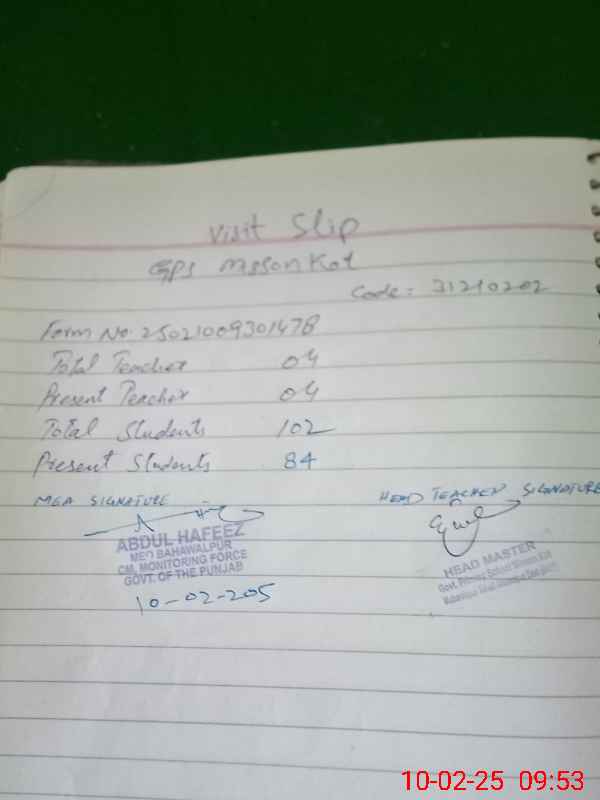 Visit Slip
GPS Misson Kot
Code: 31210202
Form No. 2502100930147B
Total Teacher 04
Present Teacher 04
Total Students 102
Present Students 84
MEA SIGNATURE
HEAD TEACHER SIGNATURE
ABDUL HAFEEZ
MEO BAHAWALPUR
CM, MONITORING FORCE
GOVT. OF THE PUNJAB
10-02-205
HEAD MASTER
Govt. Primary School Misson Kot
10-02-25 09:53